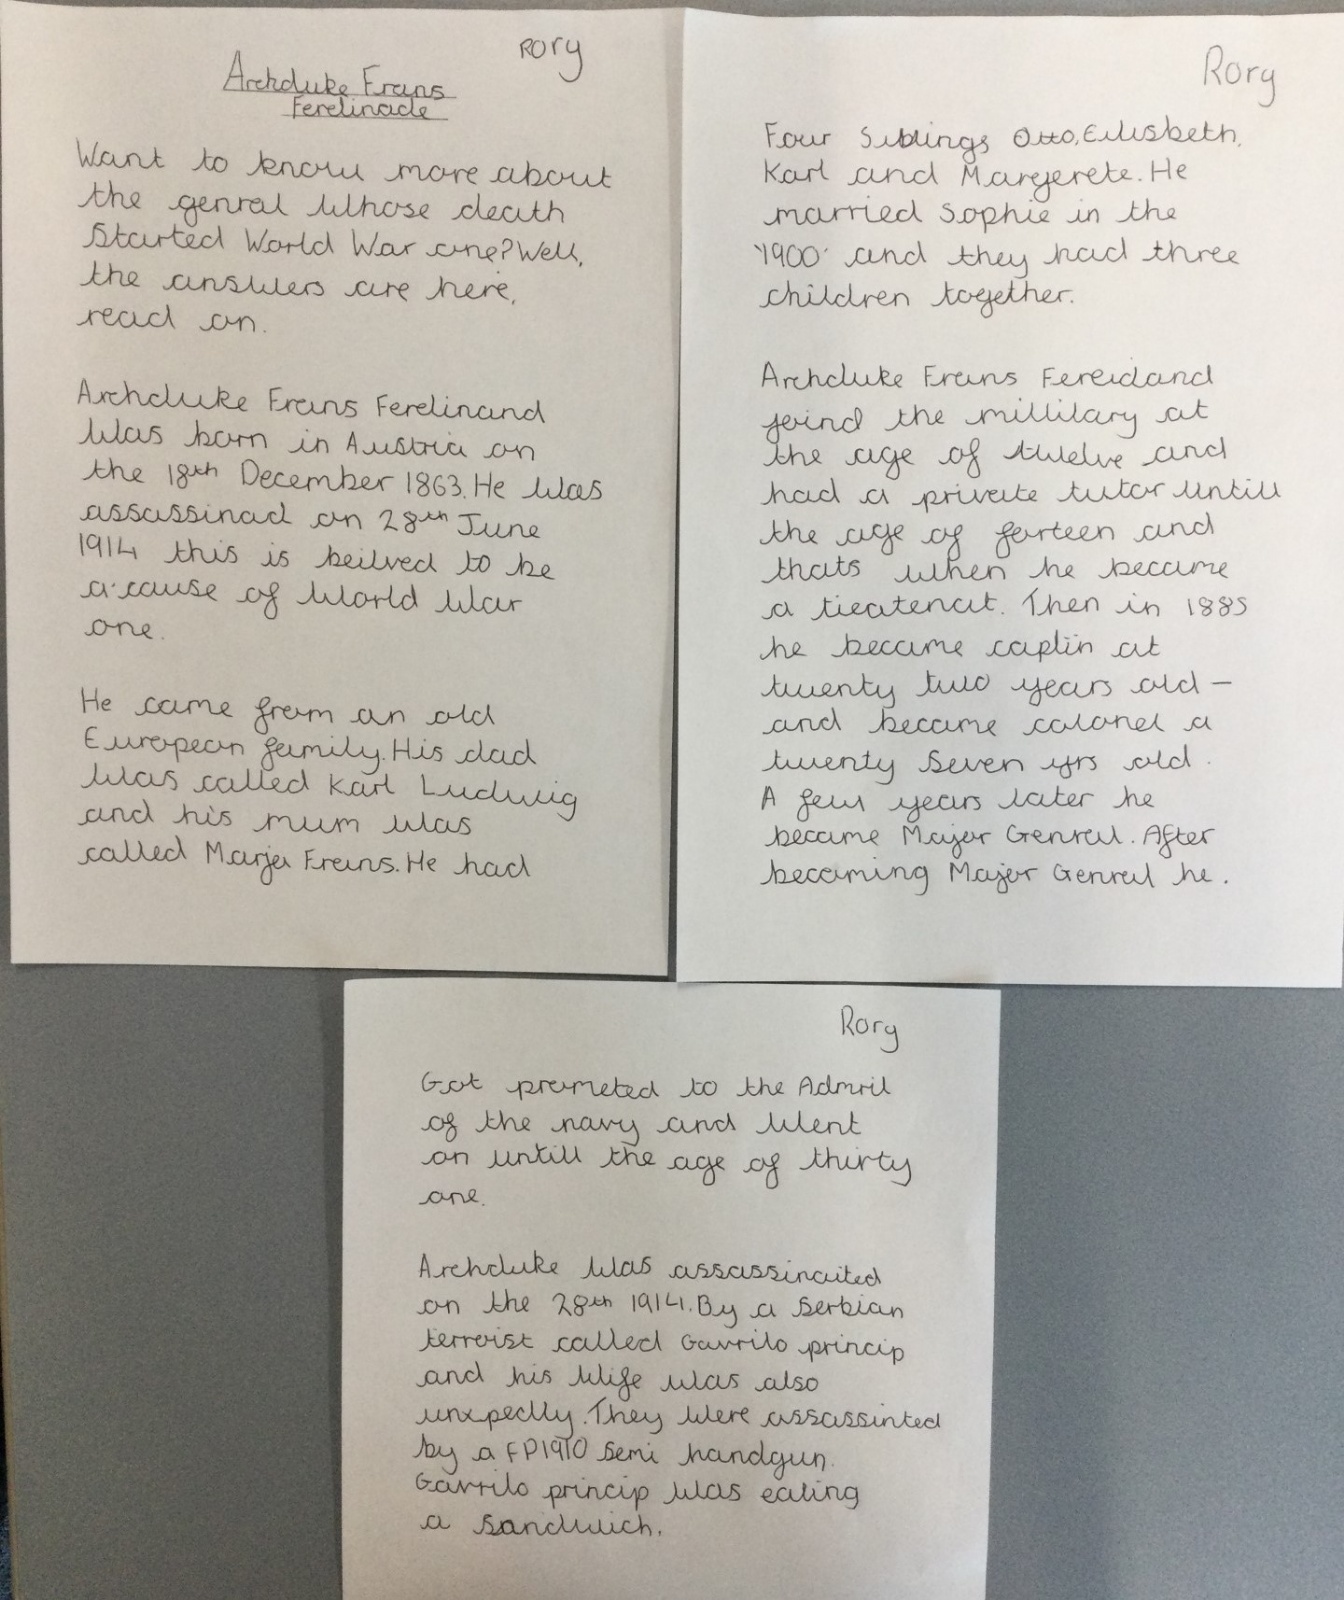 Rory
Archduke Frans
Ferdinade
Want to know more about
the genral whose death
Started World War one? Well,
the answers are here,
read on.
Archduke Frans Ferdinand
was born in Austria on
the 18th December 1863. He was
assassinad on 28th June
1914 this is beilved to be
a cause of World War
one.
He came from an old
European family. His dad
was called Karl Ludwig
and his mum was
called Marja Frans. He had
Rory
Four Siblings Otto, Eilisbeth,
Karl and Margerete. He
married Sophie in the
'1900' and they had three
children together.
Archduke Frans Fereidand
joind the millilary at
the age of twelve and
had a private tutor untill
the age of forteen and
thats when he became
a
Then in 1885
he became captin at
twenty two years old –
and became colonel a
twenty seven yrs old.
A few years later he
became Major Genral. After
becoming Major Genral he.
Rory
Got prometed to the Admril
of the navy and went
on untill the age of thirty
one.
Archduke was assassinaited
on the 28th 1914. By a Serbian
terroist called Gavrilo princip
and his wife was also
unxpeclly. They were assassinted
by a FP1910 Semi handgun.
Gavrilo princip was eating
a sandwich.